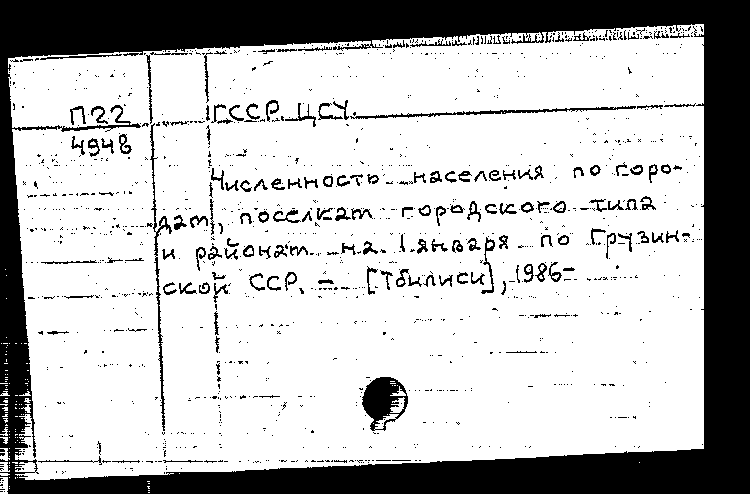 П22
4948
ГССР. ЦСУ.
Численность населения по горо-
дам, поселкам городского типа
и районам на 1 января по Грузин-
ской ССР. – [Тбилиси], 1986-